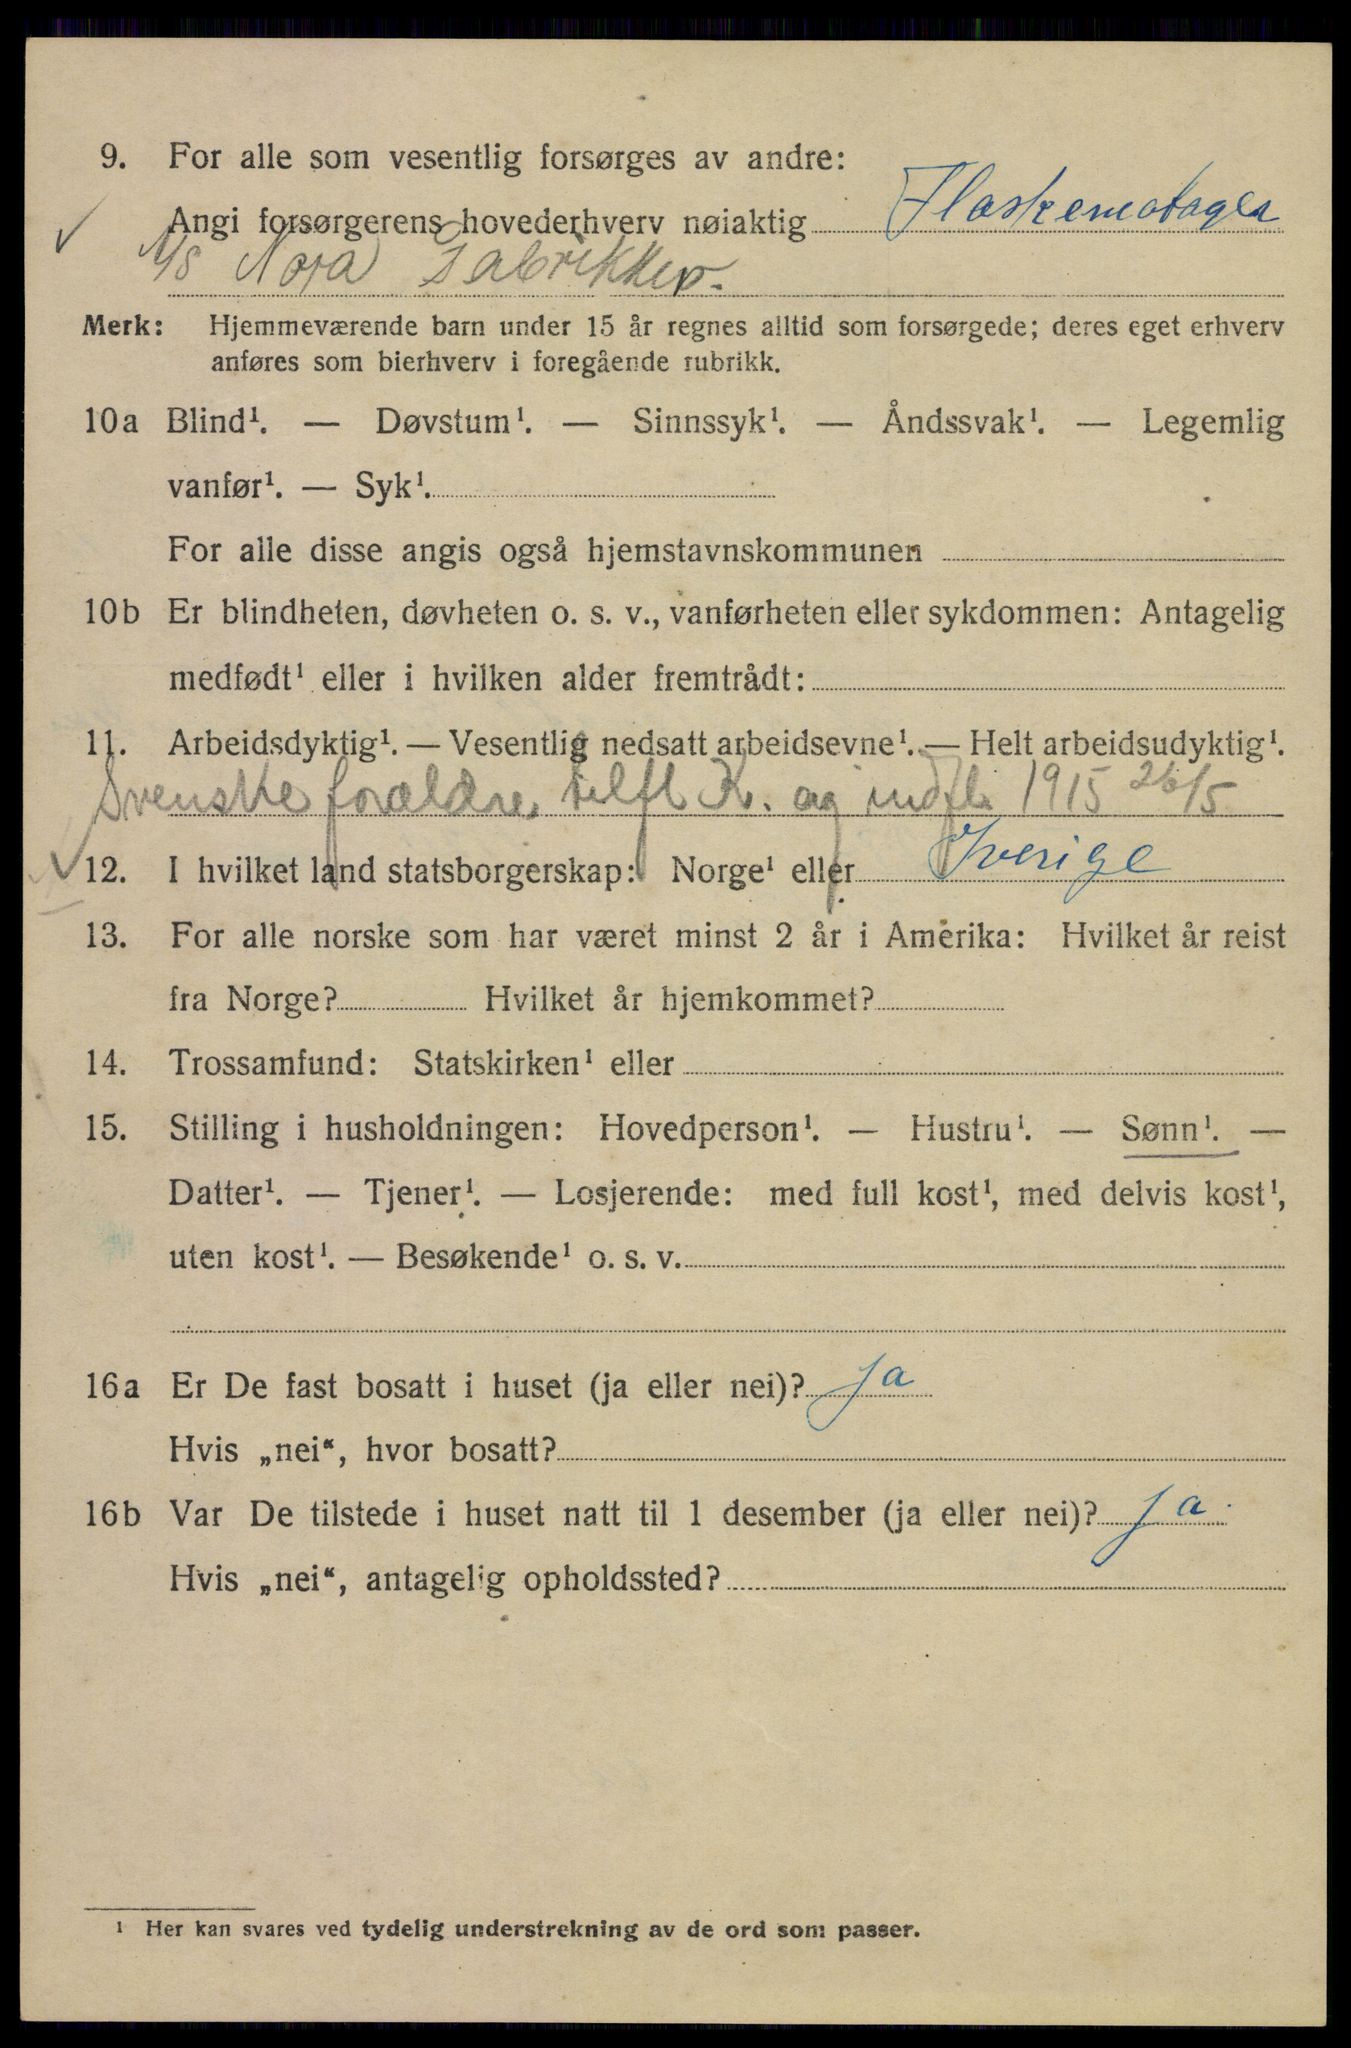 9. For alle som vesentlig forsørges av andre:
Angi forsørgerens hovederhverv nøiaktig Flaskemotager
A/S Nora Fabrikker.
Merk: Hjemmeværende barn under 15 år regnes alltid som forsørgede; deres eget erhverv
anføres som bierhverv i foregående rubrikk.
10a Blind¹. — Døvstum¹. — Sinnssyk¹. — Åndssvak¹. — Legemlig
vanfør¹. — Syk¹.
For alle disse angis også hjemstavnskommunen
10b Er blindheten, døvheten o. s. v., vanførheten eller sykdommen: Antagelig
medfødt¹ eller i hvilken alder fremtrådt:
11. Arbeidsdyktig¹. — Vesentlig nedsatt arbeidsevne¹. — Helt arbeidsudyktig¹.
Svenske forældre, tilfl. K. og indfl. 1915 26/5
12. I hvilket land statsborgerskap: Norge¹ eller Sverige
13. For alle norske som har været minst 2 år i Amerika: Hvilket år reist
fra Norge? Hvilket år hjemkommet?
14. Trossamfund: Statskirken¹ eller
15. Stilling i husholdningen: Hovedperson¹. — Hustru¹. — Sønn¹. —
Datter¹. — Tjener¹. — Losjerende: med full kost¹, med delvis kost¹,
uten kost¹. — Besøkende¹ o. s. v.
16a Er De fast bosatt i huset (ja eller nei)? Ja
Hvis „nei“, hvor bosatt?
16b Var De tilstede i huset natt til 1 desember (ja eller nei)? Ja.
Hvis „nei“, antagelig opholdssted?
¹ Her kan svares ved tydelig understrekning av de ord som passer.